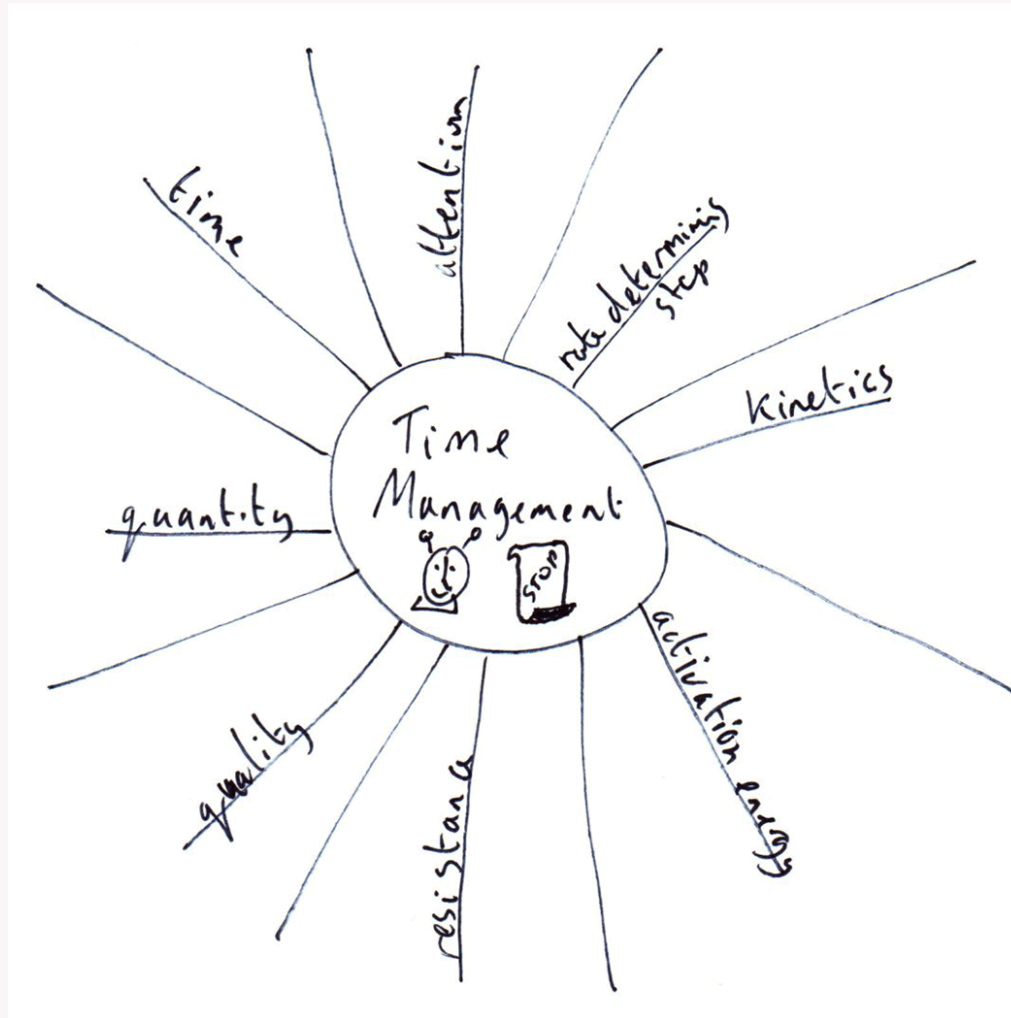 Time
Management
STOP
attention
rate determinig
step
kinetics
activation energy
resistance
quality
quantity
time